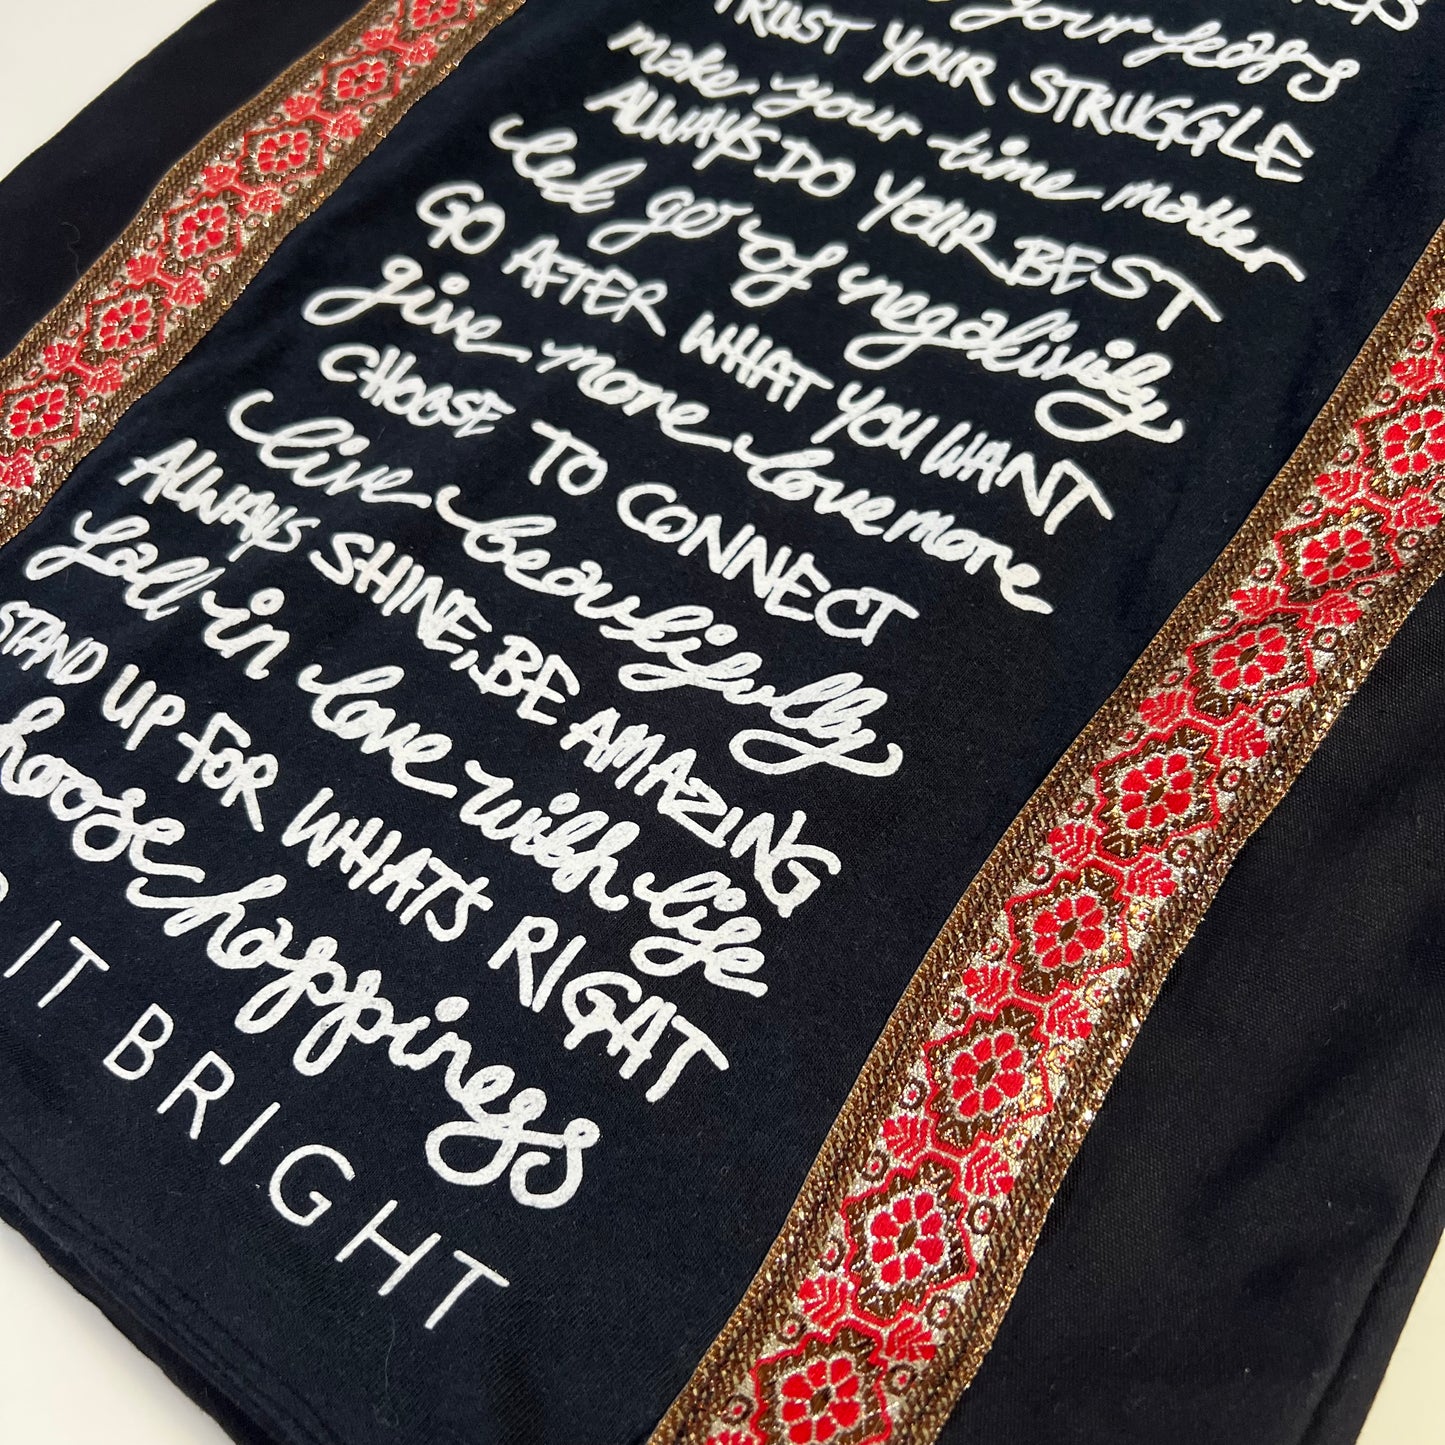 your fears
TRUST YOUR STRUGGLE
make your time matter
ALWAYS DO YOUR BEST
let go of negativity
GO AFTER WHAT YOU WANT
give more love more
CHOOSE TO CONNECT
live beautifully
ALWAYS SHINE, BE AMAZING
fall in love with life
STAND UP FOR WHAT'S RIGHT
hoose happiness
IT BRIGHT